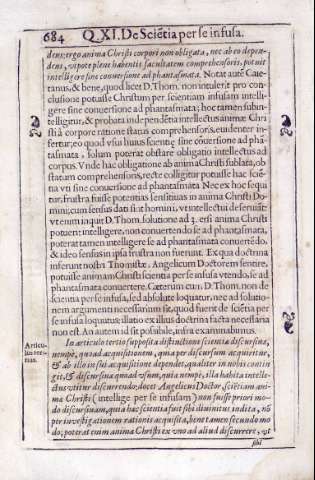 684 Q. XI. De Sciẽtia per se infusa.
dens: ergo anima Christi corpori non obligata, nec ab eo dependens, vtpote plene habentis facultatem comprehensoris, potuit
intelligere sine conuersione ad phantasmata. Notat autẽ Caietanus, & bene, quod licet D. Thom. non intulerit pro conclusione potuisse Christum per scientiam infusam intelligere sine conuersione ad phantasmata; hoc tamen subintelligitur, & probata independẽtia intellectus animæ Christi
à corpore ratione status comprehensoris, euidenter infertur, eo quod vsui huius scientiæ sine cõuersione ad phãtasmata, solum poterat obstare obligatio intellectus ad
corpus. Vnde hac obligatione ab anima Christi sublata, ob
statum comprehensoris, recte colligitur potuisse hac sciẽtia
vti sine conuersione ad phantasmata Nec ex hoc sequitur,
frustra fuisse potentias sensitiuas in anima Christi Domini,
cum sensus dati sint homini, vt intellectui deseruiãt,
vt enim inquit D. Thom. solutione ad 3. etsi anima Christi
potuerit intelligere, non conuertendo se ad phantasmata,
poterat tamen intelligere se ad phantasmata conuertẽdo,
& ideo sensus in ipsa frustra non fuerunt. Ex qua doctrina
inferunt nostri Thomistæ, Angelicum Doctorem sentire,
potuisse animam Christi scientia per se infusa vtendo, se ad
phantasmata conuertere. Cæterum cum D. Thom. non de
scientia per se infusa, sed absolute loquatur, nec ad solutionem
argumenti necessarium sit, quod fuerit de scientia per
se infusa loquutus: illatio ex illius doctrina facta necessaria
non est. An autem id sit possibile, infra examinabimus.
Articulus tertius.
In articulo tertio supposita distinctione scientiæ discursiuæ,
nempè, quoad acquisitionem, quæ per discursum acquiritur,
& ab illo in sui acquisitione dependet, qualiter in nobis contingit,
& discursiuæ, quoad vsum, qua nempè, illa habita intellectus
vtitur discurrendo: docet Angelicus Doctor sciẽtiam animæ
Christi (intellige per se infusam) non fuisse priori modo
discursiuam, quia hæc scientia fuit sibi diuinitus indita, nõ
per inuestigationem rationis acquisita, bene tamen secundo modo;
poterat enim anima Christi ex vno ad aliud discurrere, vt
sibi